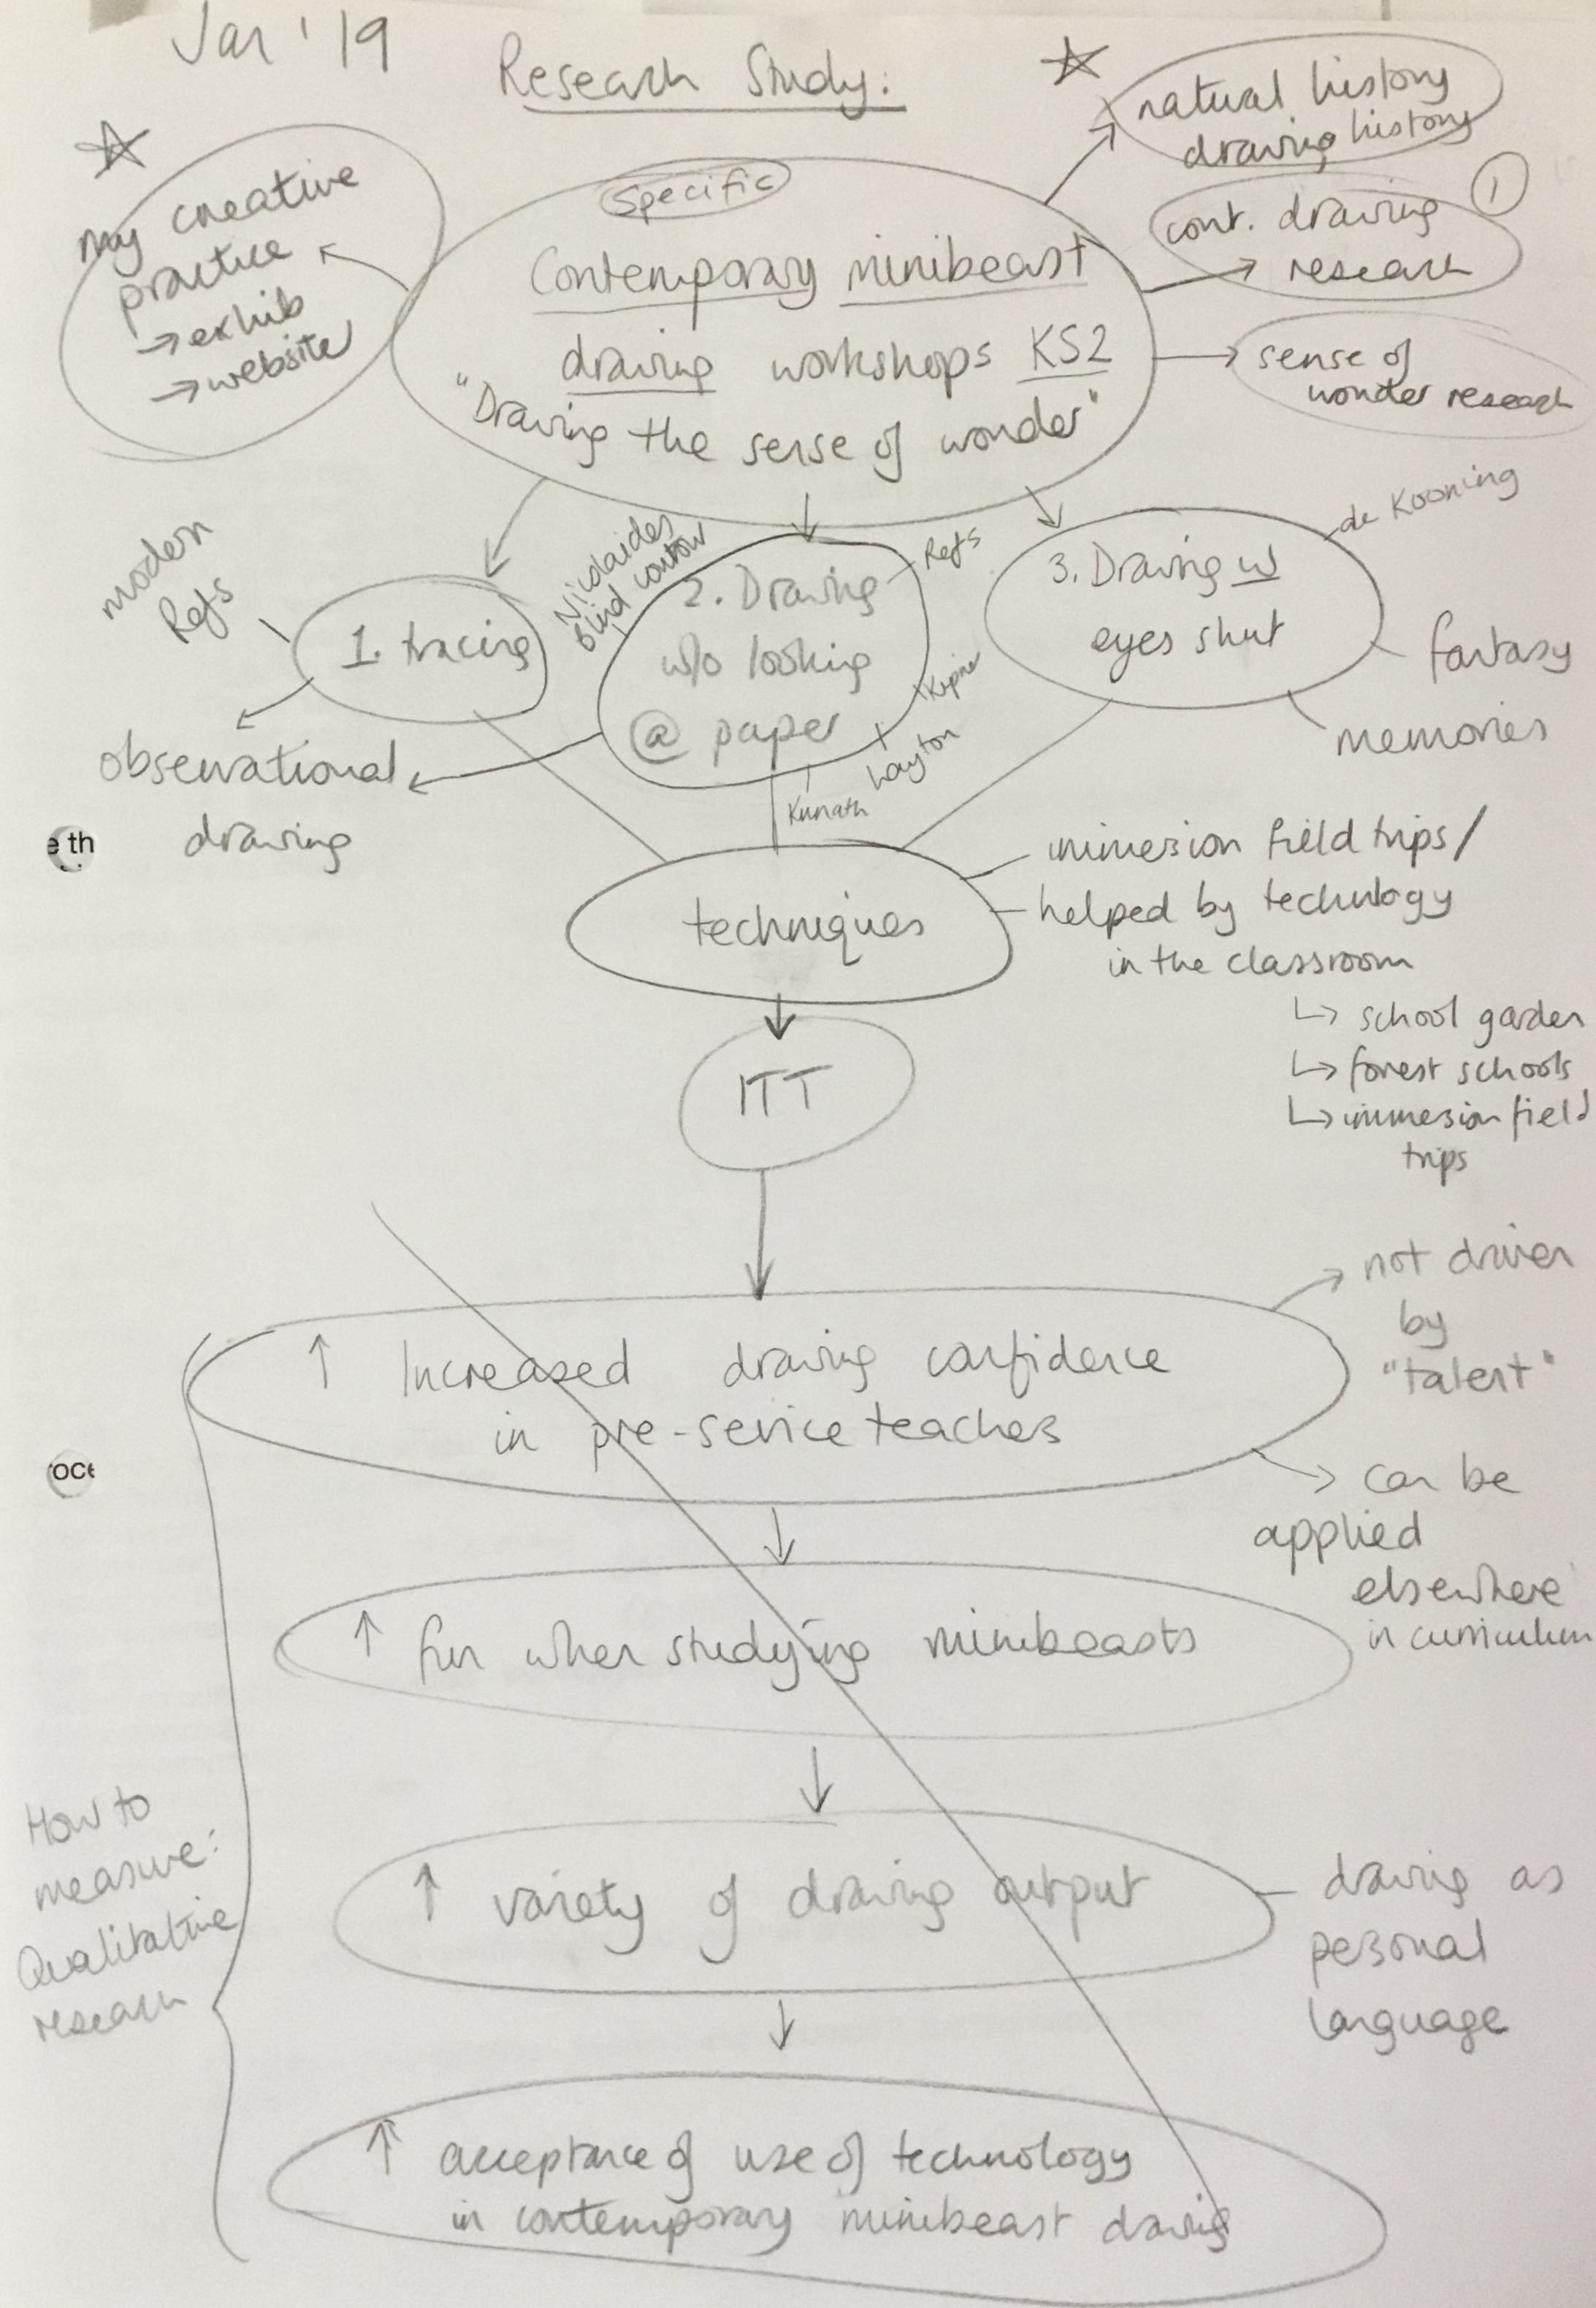 Jan '19
Research Study:
natural history
drawing history
my creative
practice
→ exhib
→ website
Specific
Contemporary minibeast
drawing workshops KS2
"Drawing the sense of wonder"
cont. drawing
research
1
sense of
wonder research
modern
Refs
1. tracing
Nicolaides
blind contour
2. Drawing
w/o looking
@ paper
Refs
Layton
Kunath
3. Drawing w
eyes shut
de Kooning
fantasy
memories
observational
drawing
e th
techniques
immersion field trips/
helped by technology
in the classroom
↳ school garden
↳ forest schools
↳ immersion field
trips
ITT
↑ Increased drawing confidence
in pre-service teachers
not driven
by
"talent"
can be
applied
elsewhere
in curriculum
oce
↑ fun when studying minibeasts
How to
measure:
Qualitative
research
↑ variety of drawing output
drawing as
personal
language
↑ acceptance of use of technology
in contemporary minibeast drawing